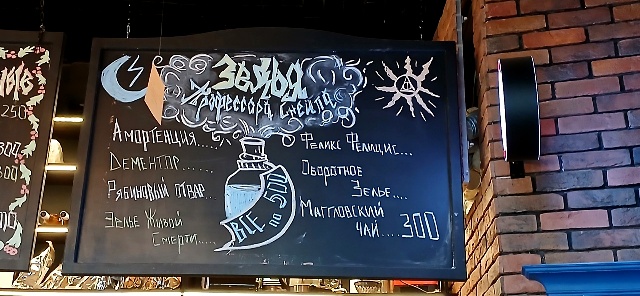 Зелья
Профессора Снейпа
Амортенция.....
Дементор.......
Рябиновый отвар...
Зелье Живой
Смерти.....
ВСЕ по 500
Феликс Фелицис...
Оборотное
Зелье....
Маггловский
Чай....300
250